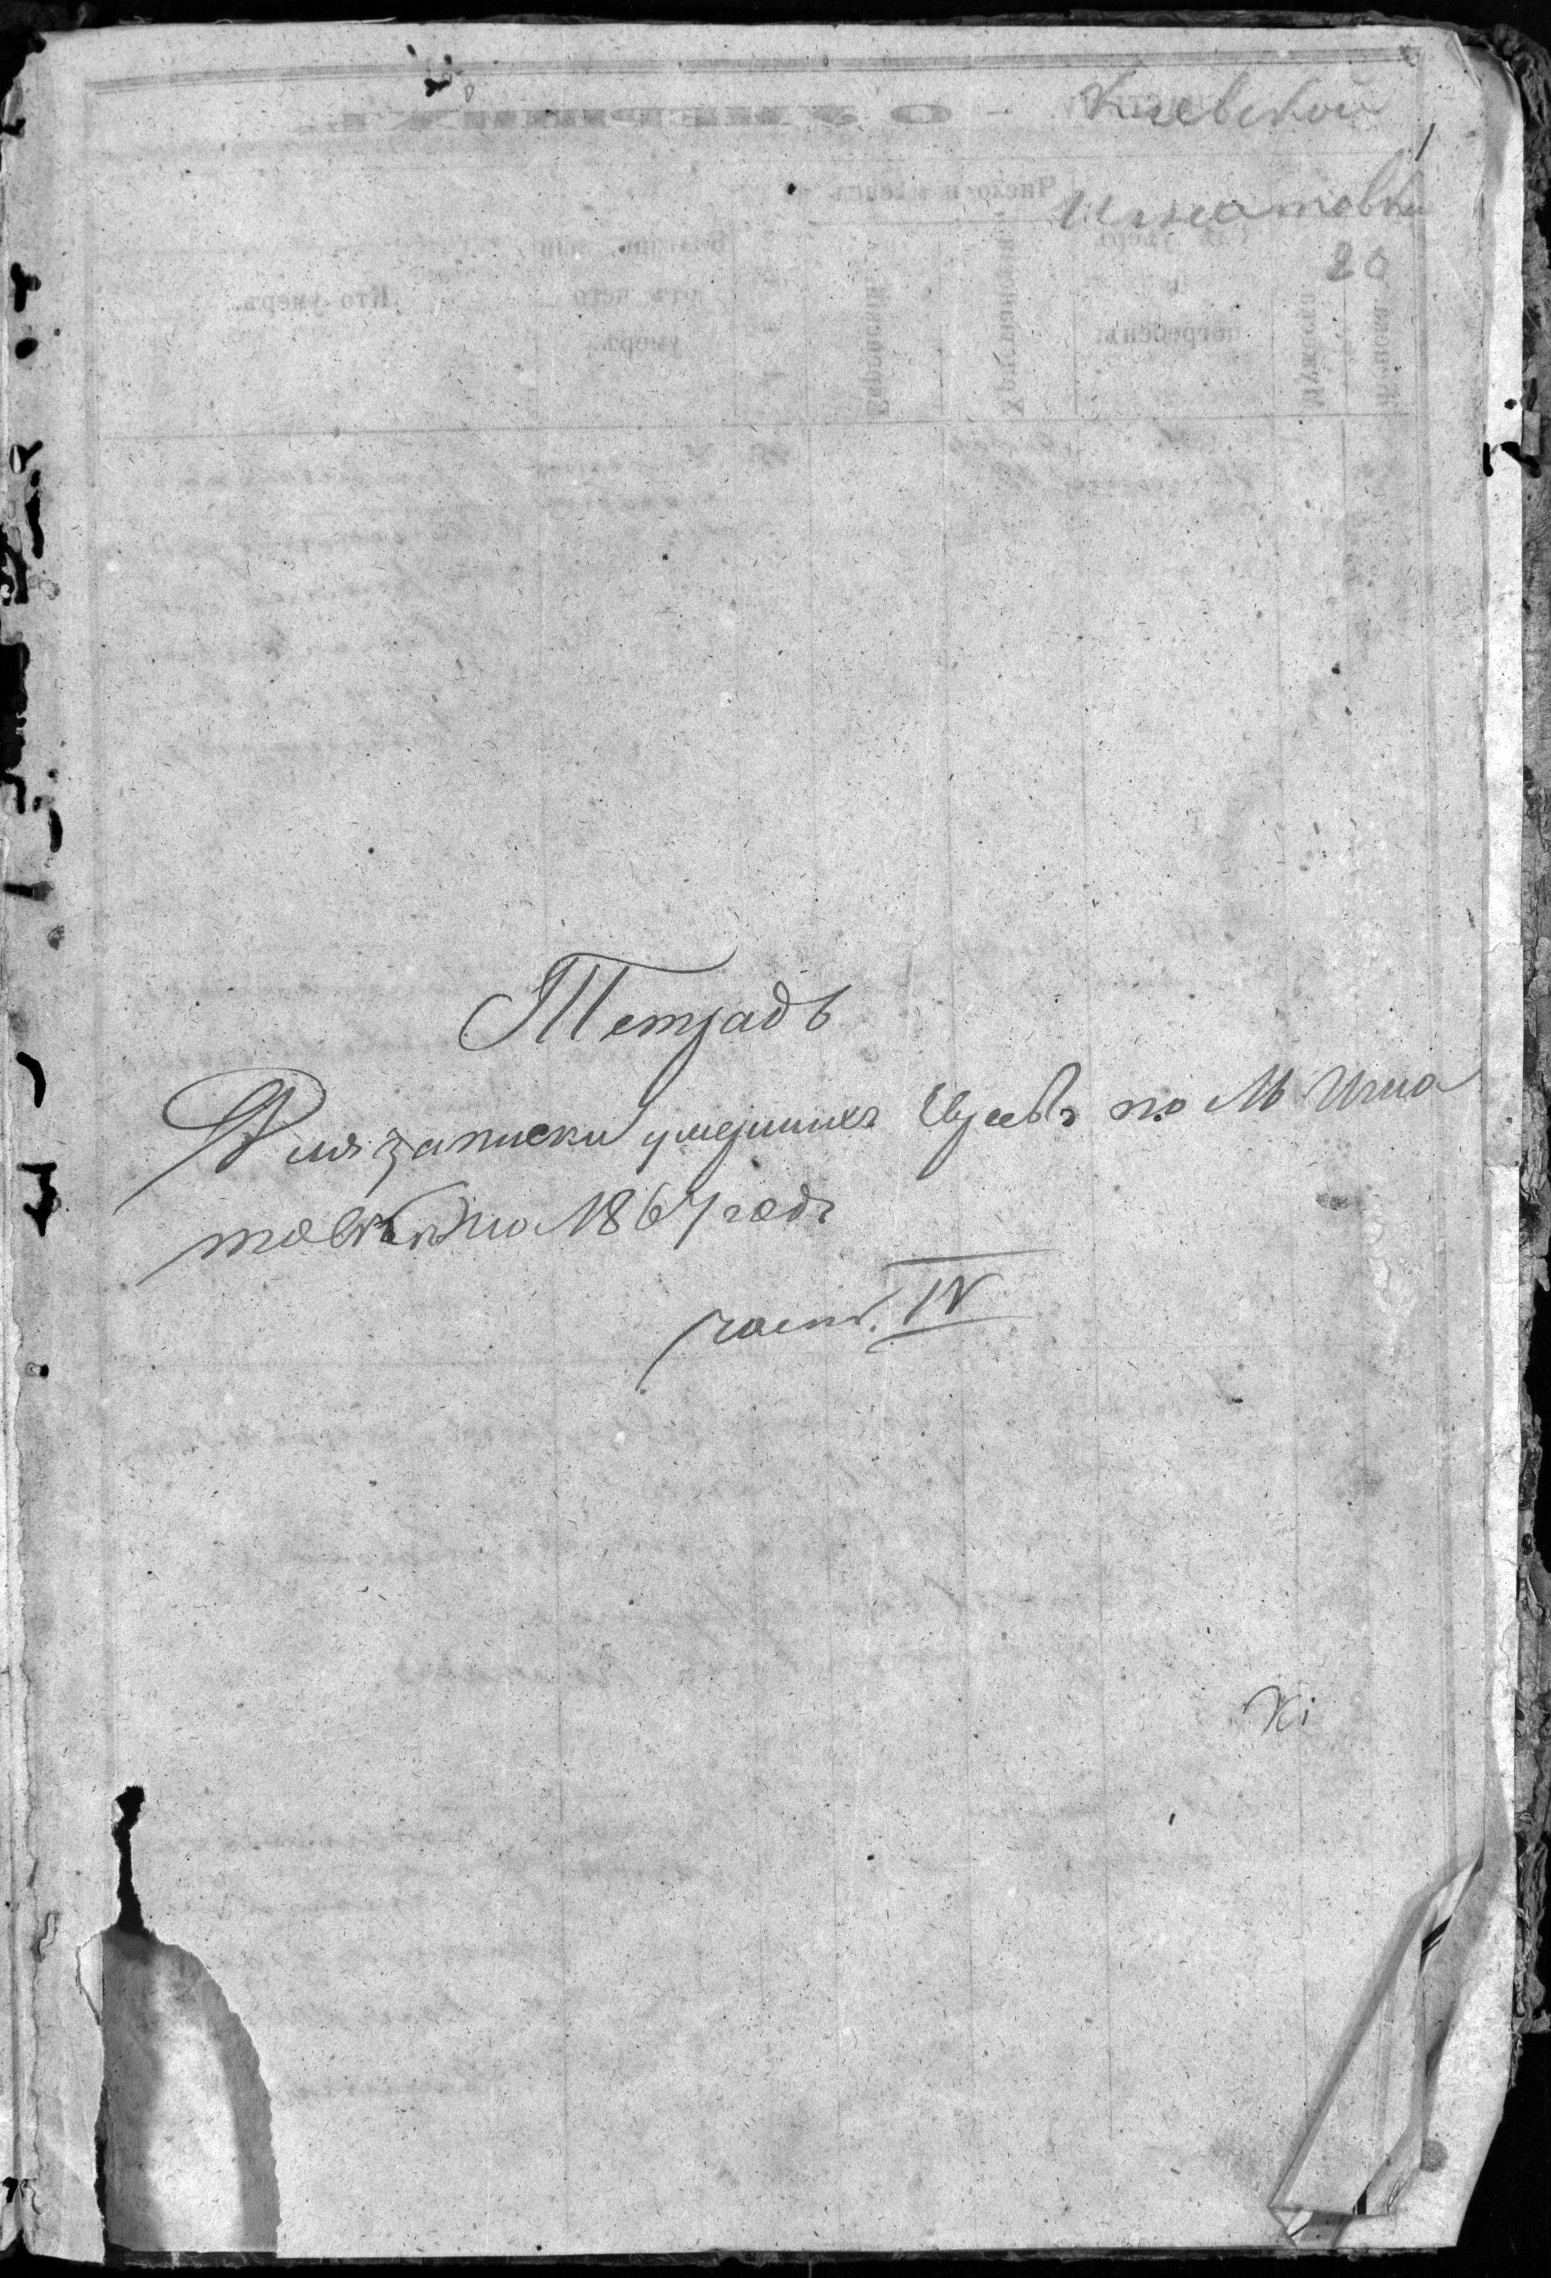 Киевской
1
Игнатовка
20
Тетрадь
Для записки умершихъ Евреевъ по М Игна
товкѣ на 1867 годъ
часть. IV